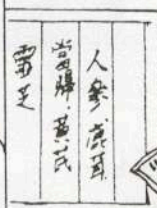 人參 鹿茸
當歸·黃芪
靈芝